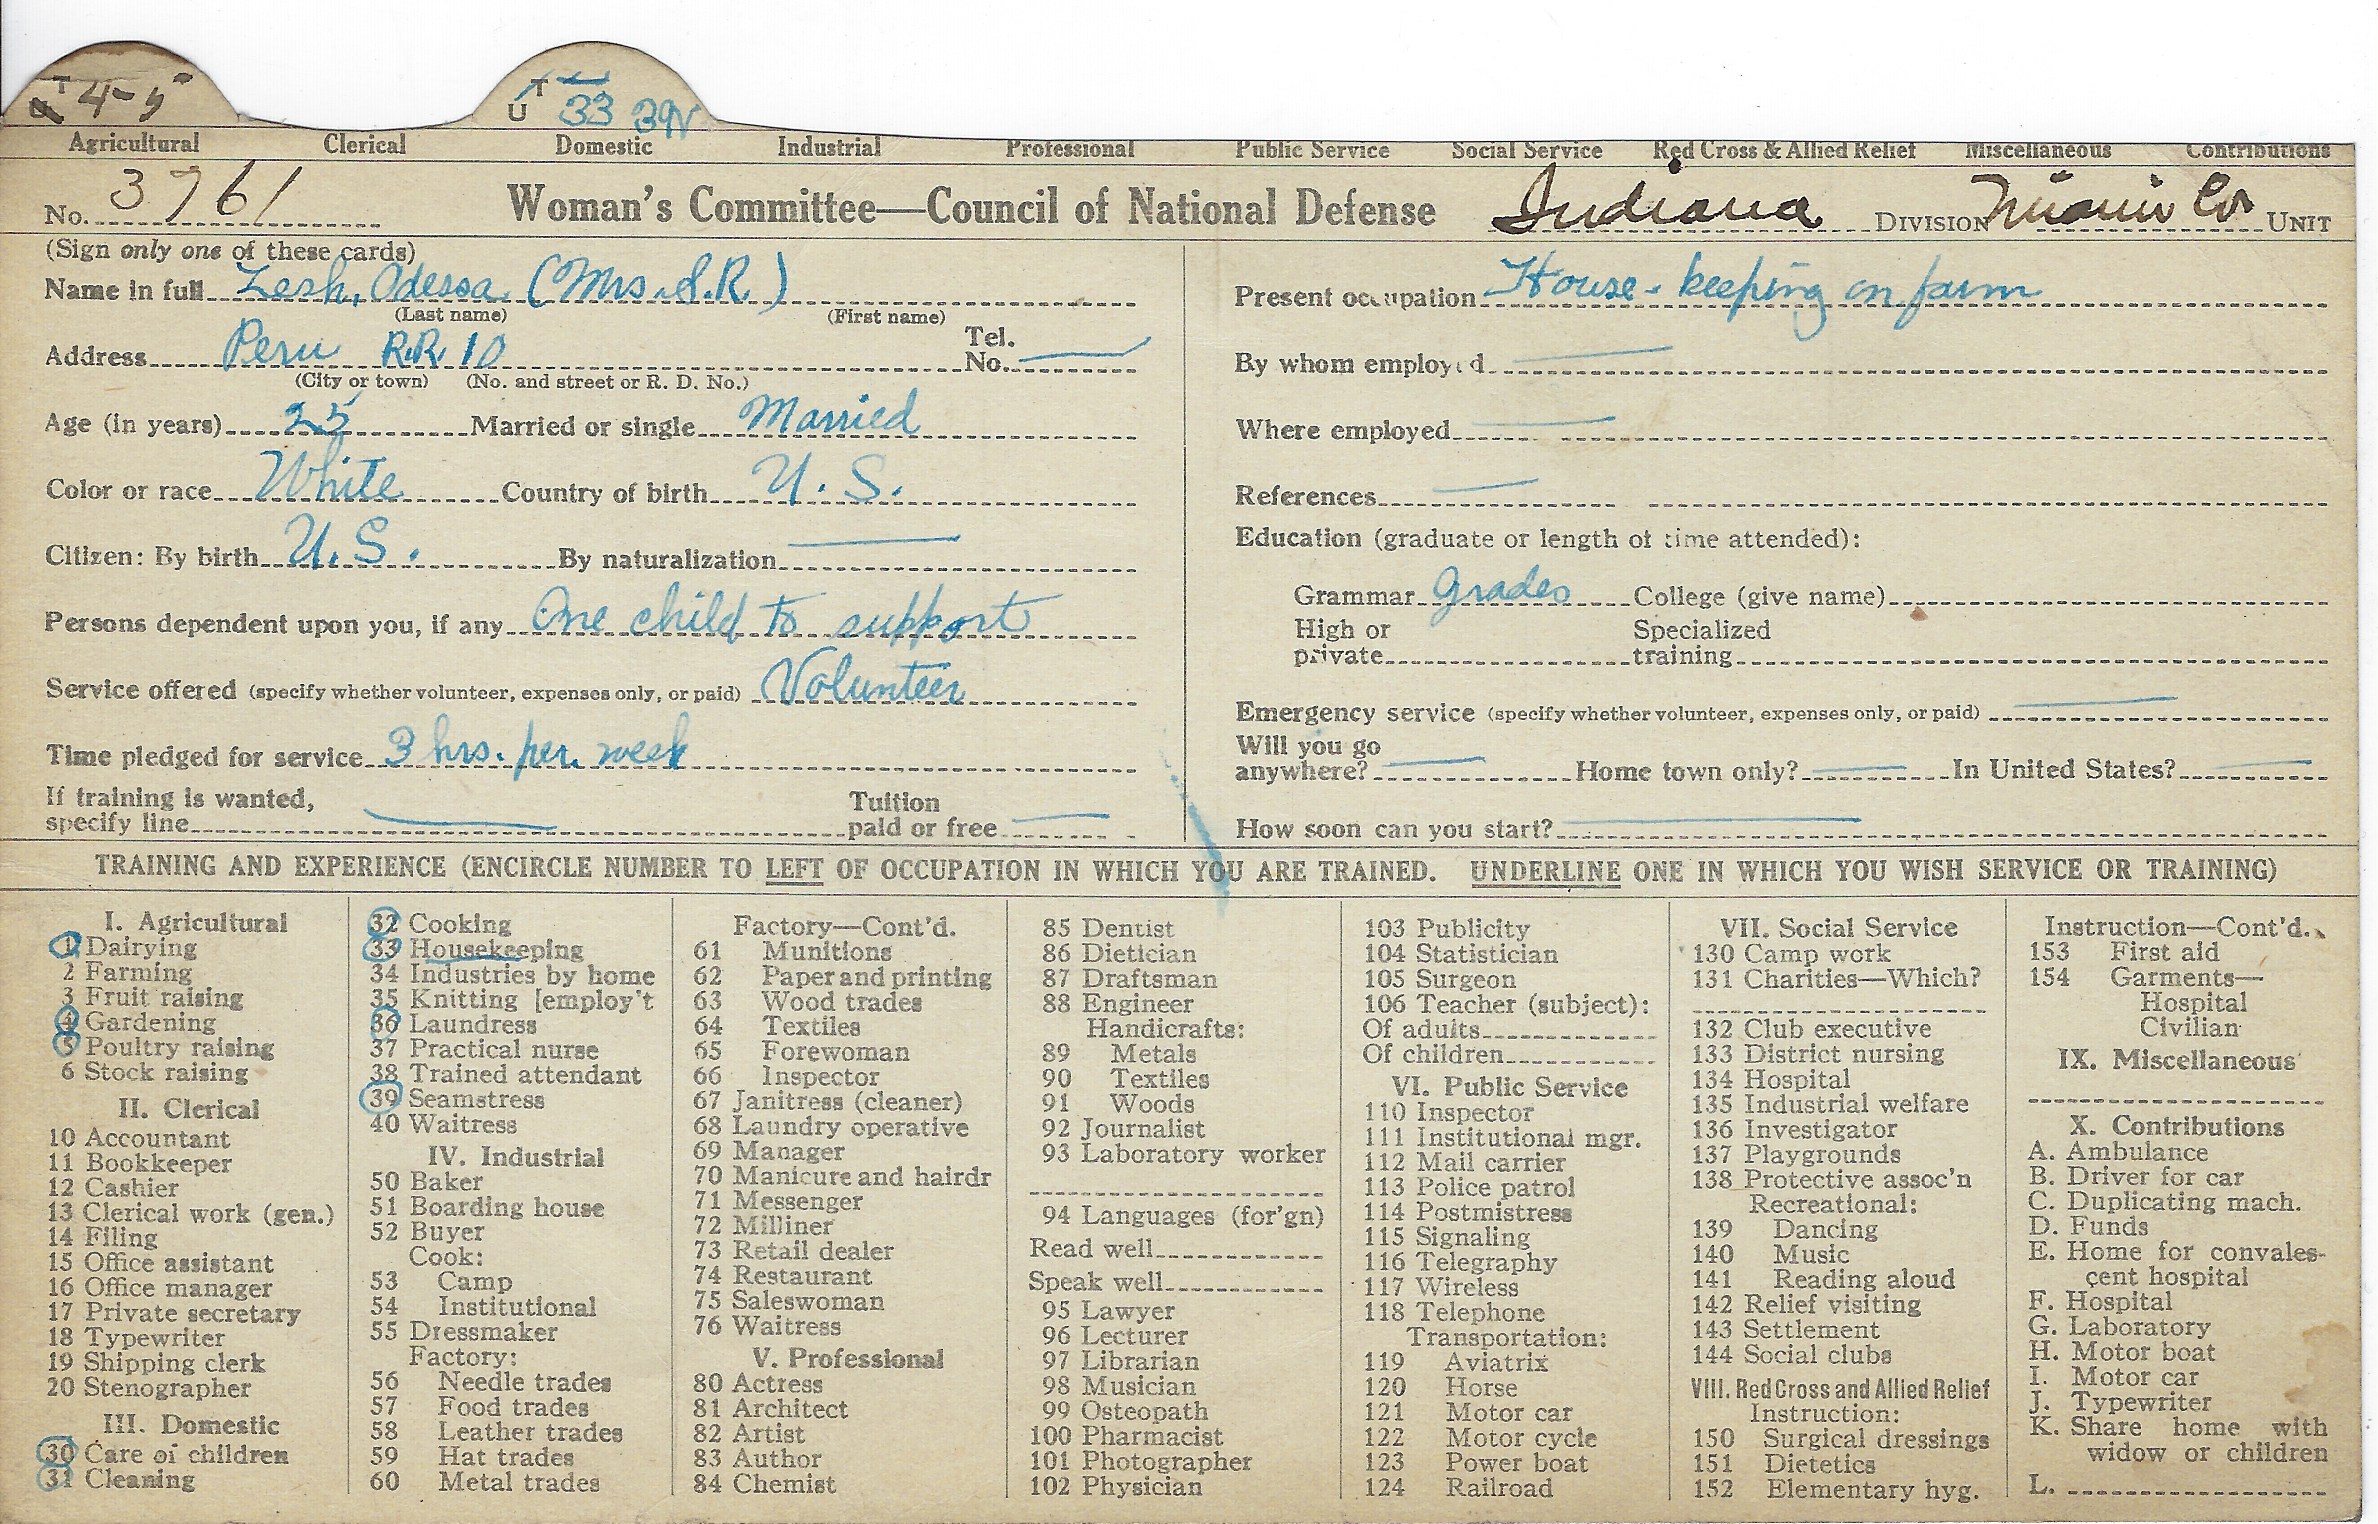 T 4-5
U T 33 39
Agricultural Clerical Domestic Industrial Professional Public Service Social Service Red Cross & Allied Relief Miscellaneous Contributions
No. 3761 Woman's Committee—Council of National Defense Indiana DIVISION Miami Co UNIT
(Sign only one of these cards)
Name in full Zesh, Odessa (Mrs. S.R.)
(Last name) (First name)
Address Peru R.R. 10 Tel. No.
(City or town) (No. and street or R. D. No.)
Age (in years) 25 Married or single Married
Color or race White Country of birth U.S.
Citizen: By birth U.S. By naturalization
Persons dependent upon you, if any One child to support
Service offered (specify whether volunteer, expenses only, or paid) Volunteer
Time pledged for service 3 hrs. per. week
If training is wanted,
specify line Tuition paid or free
Present occupation House-keeping on farm
By whom employed
Where employed
References
Education (graduate or length of time attended):
Grammar grades College (give name)
High or private Specialized training
Emergency service (specify whether volunteer, expenses only, or paid)
Will you go
anywhere? Home town only? In United States?
How soon can you start?
TRAINING AND EXPERIENCE (ENCIRCLE NUMBER TO LEFT OF OCCUPATION IN WHICH YOU ARE TRAINED. UNDERLINE ONE IN WHICH YOU WISH SERVICE OR TRAINING)
I. Agricultural
1 Dairying
2 Farming
3 Fruit raising
4 Gardening
5 Poultry raising
6 Stock raising
II. Clerical
10 Accountant
11 Bookkeeper
12 Cashier
13 Clerical work (gen.)
14 Filing
15 Office assistant
16 Office manager
17 Private secretary
18 Typewriter
19 Shipping clerk
20 Stenographer
III. Domestic
30 Care of children
31 Cleaning
32 Cooking
33 Housekeeping
34 Industries by home
35 Knitting [employ't
36 Laundress
37 Practical nurse
38 Trained attendant
39 Seamstress
40 Waitress
IV. Industrial
50 Baker
51 Boarding house
52 Buyer
Cook:
53 Camp
54 Institutional
55 Dressmaker
Factory:
56 Needle trades
57 Food trades
58 Leather trades
59 Hat trades
60 Metal trades
Factory—Cont'd.
61 Munitions
62 Paper and printing
63 Wood trades
64 Textiles
65 Forewoman
66 Inspector
67 Janitress (cleaner)
68 Laundry operative
69 Manager
70 Manicure and hairdr
71 Messenger
72 Milliner
73 Retail dealer
74 Restaurant
75 Saleswoman
76 Waitress
V. Professional
80 Actress
81 Architect
82 Artist
83 Author
84 Chemist
85 Dentist
86 Dietician
87 Draftsman
88 Engineer
Handicrafts:
89 Metals
90 Textiles
91 Woods
92 Journalist
93 Laboratory worker
94 Languages (for'gn)
Read well
Speak well
95 Lawyer
96 Lecturer
97 Librarian
98 Musician
99 Osteopath
100 Pharmacist
101 Photographer
102 Physician
103 Publicity
104 Statistician
105 Surgeon
106 Teacher (subject):
Of adults
Of children
VI. Public Service
110 Inspector
111 Institutional mgr.
112 Mail carrier
113 Police patrol
114 Postmistress
115 Signaling
116 Telegraphy
117 Wireless
118 Telephone
Transportation:
119 Aviatrix
120 Horse
121 Motor car
122 Motor cycle
123 Power boat
124 Railroad
VII. Social Service
130 Camp work
131 Charities—Which?
132 Club executive
133 District nursing
134 Hospital
135 Industrial welfare
136 Investigator
137 Playgrounds
138 Protective assoc'n
Recreational:
139 Dancing
140 Music
141 Reading aloud
142 Relief visiting
143 Settlement
144 Social clubs
VIII. Red Cross and Allied Relief
Instruction:
150 Surgical dressings
151 Dietetics
152 Elementary hyg.
Instruction—Cont'd.
153 First aid
154 Garments—
Hospital
Civilian
IX. Miscellaneous
X. Contributions
A. Ambulance
B. Driver for car
C. Duplicating mach.
D. Funds
E. Home for convales-
cent hospital
F. Hospital
G. Laboratory
H. Motor boat
I. Motor car
J. Typewriter
K. Share home with
widow or children
L.